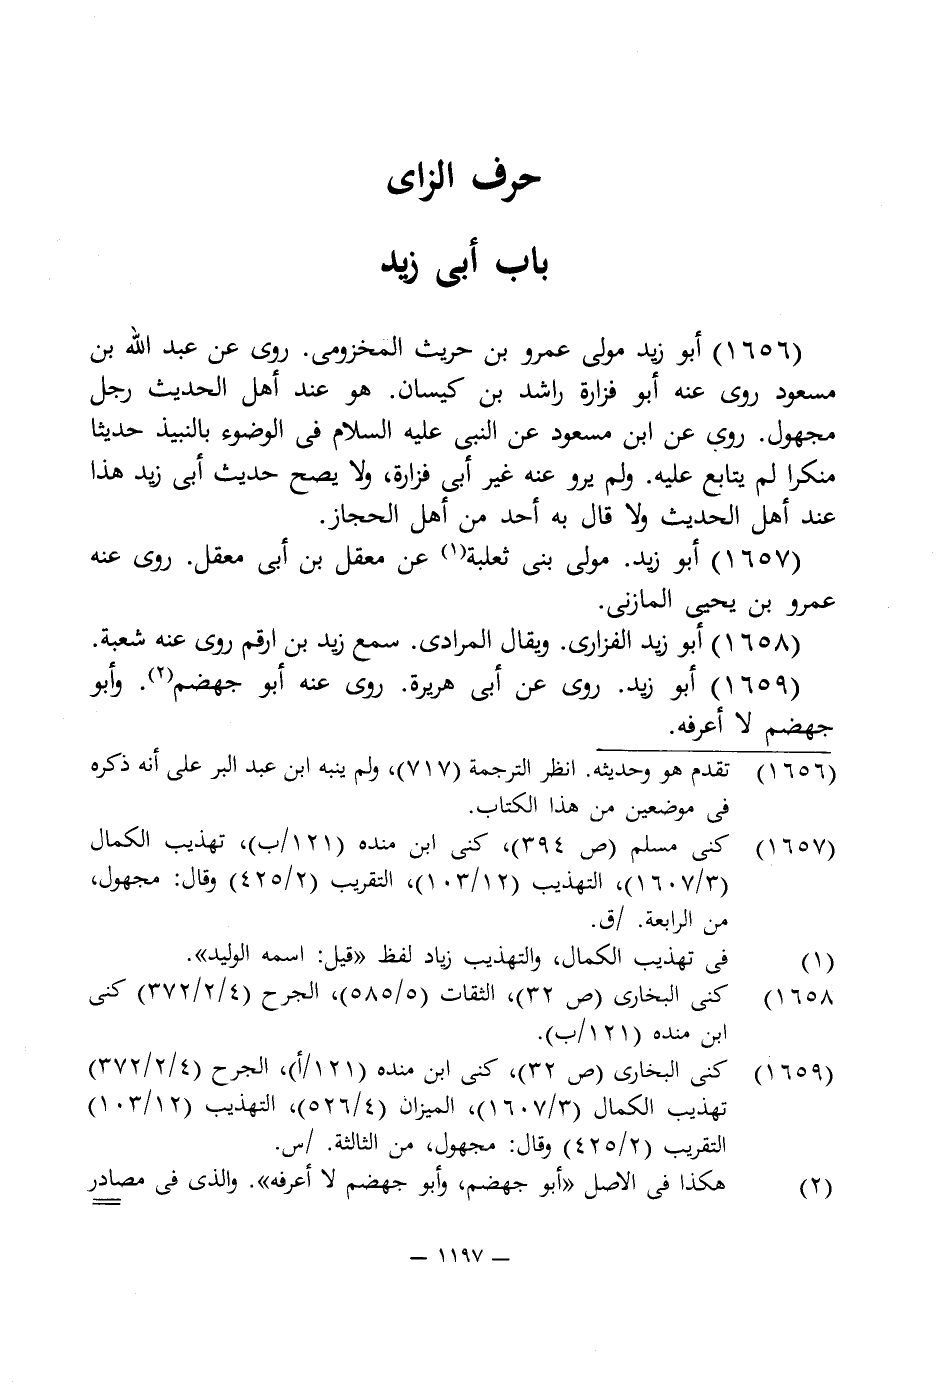 حرف الزاى
باب أبى زيد
(١٦٥٦) أبو زيد مولى عمرو بن حريث المخزومى. روى عن عبد الله بن
مسعود روى عنه أبو فزارة راشد بن كيسان. هو عند أهل الحديث رجل
مجهول. روى عن ابن مسعود عن النبى عليه السلام فى الوضوء بالنبيذ حديثا
منكرا لم يتابع عليه. ولم يرو عنه غير أبى فزارة، ولا يصح حديث أبى زيد هذا
عند أهل الحديث ولا قال به أحد من أهل الحجاز.
(١٦٥٧) أبو زيد. مولى بنى ثعلبة(١) عن معقل بن أبى معقل. روى عنه
عمرو بن يحيى المازنى.
(١٦٥٨) أبو زيد الفزارى. ويقال المرادى. سمع زيد بن ارقم روى عنه شعبة.
(١٦٥٩) أبو زيد. روى عن أبى هريرة. روى عنه أبو جهضم(٢). وأبو
جهضم لا أعرفه.
(١٦٥٦) تقدم هو وحديثه. انظر الترجمة (٧١٧)، ولم ينبه ابن عبد البر على أنه ذكره
فى موضعين من هذا الكتاب.
(١٦٥٧) كنى مسلم (ص ٣٩٤)، كنى ابن منده (١٢١/ب)، تهذيب الكمال
(١٦٠٧/٣)، التهذيب (١٠٣/١٢)، التقريب (٤٢٥/٢) وقال: مجهول،
من الرابعة. /ق.
(١) فى تهذيب الكمال، والتهذيب زياد لفظ «قيل: اسمه الوليد».
١٦٥٨) كنى البخارى (ص ٣٢)، الثقات (٥٨٥/٥)، الجرح (٣٧٢/٢/٤) كنى
ابن منده (١٢١/ب).
(١٦٥٩) كنى البخارى (ص ٣٢)، كنى ابن منده (١٢١/أ)، الجرح (٣٧٢/٢/٤)
تهذيب الكمال (١٦٠٧/٣)، الميزان (٥٢٦/٤)، التهذيب (١٠٣/١٢)
التقريب (٤٢٥/٢) وقال: مجهول، من الثالثة. /س.
(٢) هكذا فى الاصل «أبو جهضم، وأبو جهضم لا أعرفه». والذى فى مصادر
— ١١٩٧ —